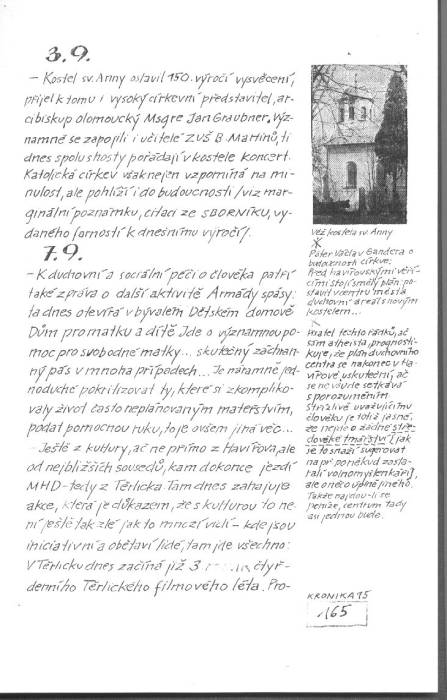 3.9.
– Kostel sv. Anny oslavil 150. výročí vysvěcení,
přijel k tomu i vysoký církevní představitel, ar-
cibiskup olomoucký Msgre Jan Graubner. Výz-
namně se zapojili i učitelé ZUŠ B. Martinů, ti
dnes spolu s hosty pořádají v kostele koncert.
Katolická církev však nejen vzpomíná na mi-
nulost, ale pohlíží i do budoucnosti /viz mar-
ginální poznámku, citaci ze SBORNÍKU, vy-
daného farností k dnešnímu výročí/.
7.9.
– K duchovní a sociální péči o člověka patří
také zpráva o další aktivitě Armády spásy:
ta dnes otevírá v bývalém Dětském domově
Dům pro matku a dítě. Jde o významnou po-
moc pro svobodné matky... skutečný záchran-
ný pás v mnoha případech... Je náramně jed-
noduché pokritizovat ty, které si zkompliko-
valy život často neplánovaným mateřstvím,
podat pomocnou ruku, to je ovšem jiná věc...
– Ještě z kultury, ač ne přímo z Havířova, ale
od nejbližších sousedů, kam dokonce jezdí
MHD – tedy z Těrlicka. Tam dnes zahajují
akce, která je důkazem, že s kulturou to ne-
ní ještě tak zlé jak to mnozí vidí – kde jsou
iniciativní a obětaví lidé, tam jde všechno:
V Těrlicku dnes začíná již 3. čtyř-
denního Těrlického filmového léta. Pro-
Věž kostela sv. Anny
Páter Václav Gandera o
budoucnosti církve:
Před havířovskými věří-
cími stojí smělý plán po-
stavit v centru města
duchovní areál s novým
kostelem...
Pisatel těchto řádků, ač
sám atheista, prognosti-
kuje, že plán duchovního
centra se nakonec v Ha-
vířově uskuteční, ač
se ne všude setkává
s porozuměním.
Střízlivě uvažujícímu
člověku je totiž jasné,
že nejde o žádné stře-
dověké tmářství /jak
je to snaží sugerovat
např. poněkud zosta-
ralí volnomyšlenkáři/,
ale o něco úplně jiného.
Takže najdou-li se
peníze, centrum tady
asi jednou bude.
KRONIKA 95
165